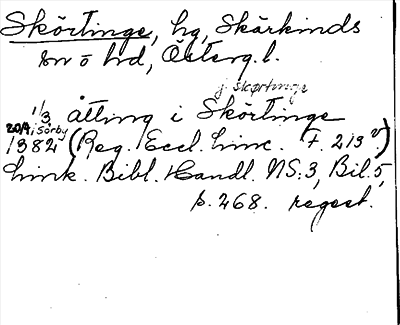 Skörtinge, hg, Skärkinds
sn o hd, Österg. l.
j skørtinge
1/3 åtting i Skörtinge
20/9 i Sörby
1382 (Reg. Eccl. Linc. F. 213 v.)
Link. Bibl. Handl. NS:3, Bil. 5,
p. 268. regest.